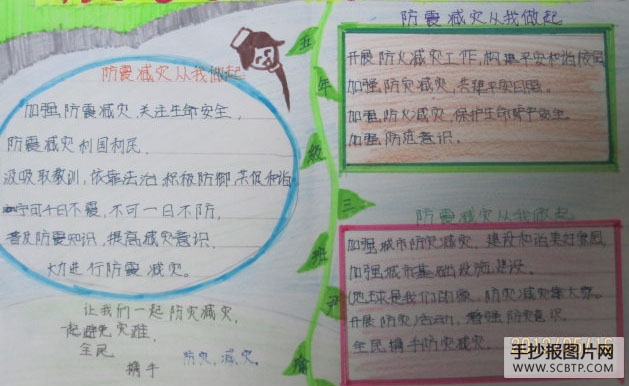 防震减灾从我做起
加强防震减灾,关注生命安全,
防震减灾利国利民.
汲取教训,依靠法治,积极防御,共促和谐
宁可千日不震,不可一日不防,
普及防震知识,提高减灾意识.
大力进行防震减灾。
让我们一起防灾减灾,
一起避免灾难,
全民
携手 防灾,减灾。
五年级三班
防震减灾从我做起
开展防火减灾工作,构建平安和谐校园
加强防灾减灾,共建平安日照。
加强防火减灾,保护生命财产安全.
加强防范意识.
防震减灾从我做起
加强城市防灾减灾,建设和谐美好家园
加强城市基础设施建设.
地球是我们的家,防灾减灾靠大家.
开展防灾活动,增强防灾意识。
全民携手防灾减灾。
手抄报图片网
WWW.SCBTP.COM